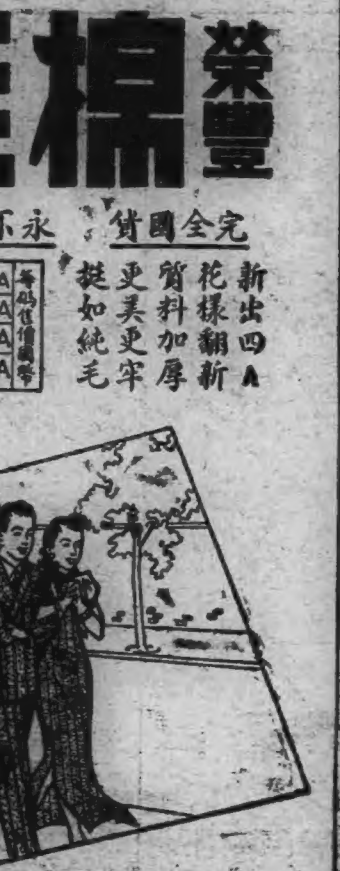 榮豐
棉
完全國貨
永不
新出四A
花樣翻新
質料加厚
更美更牢
挺如純毛
每碼售價國幣
A
A
A
A